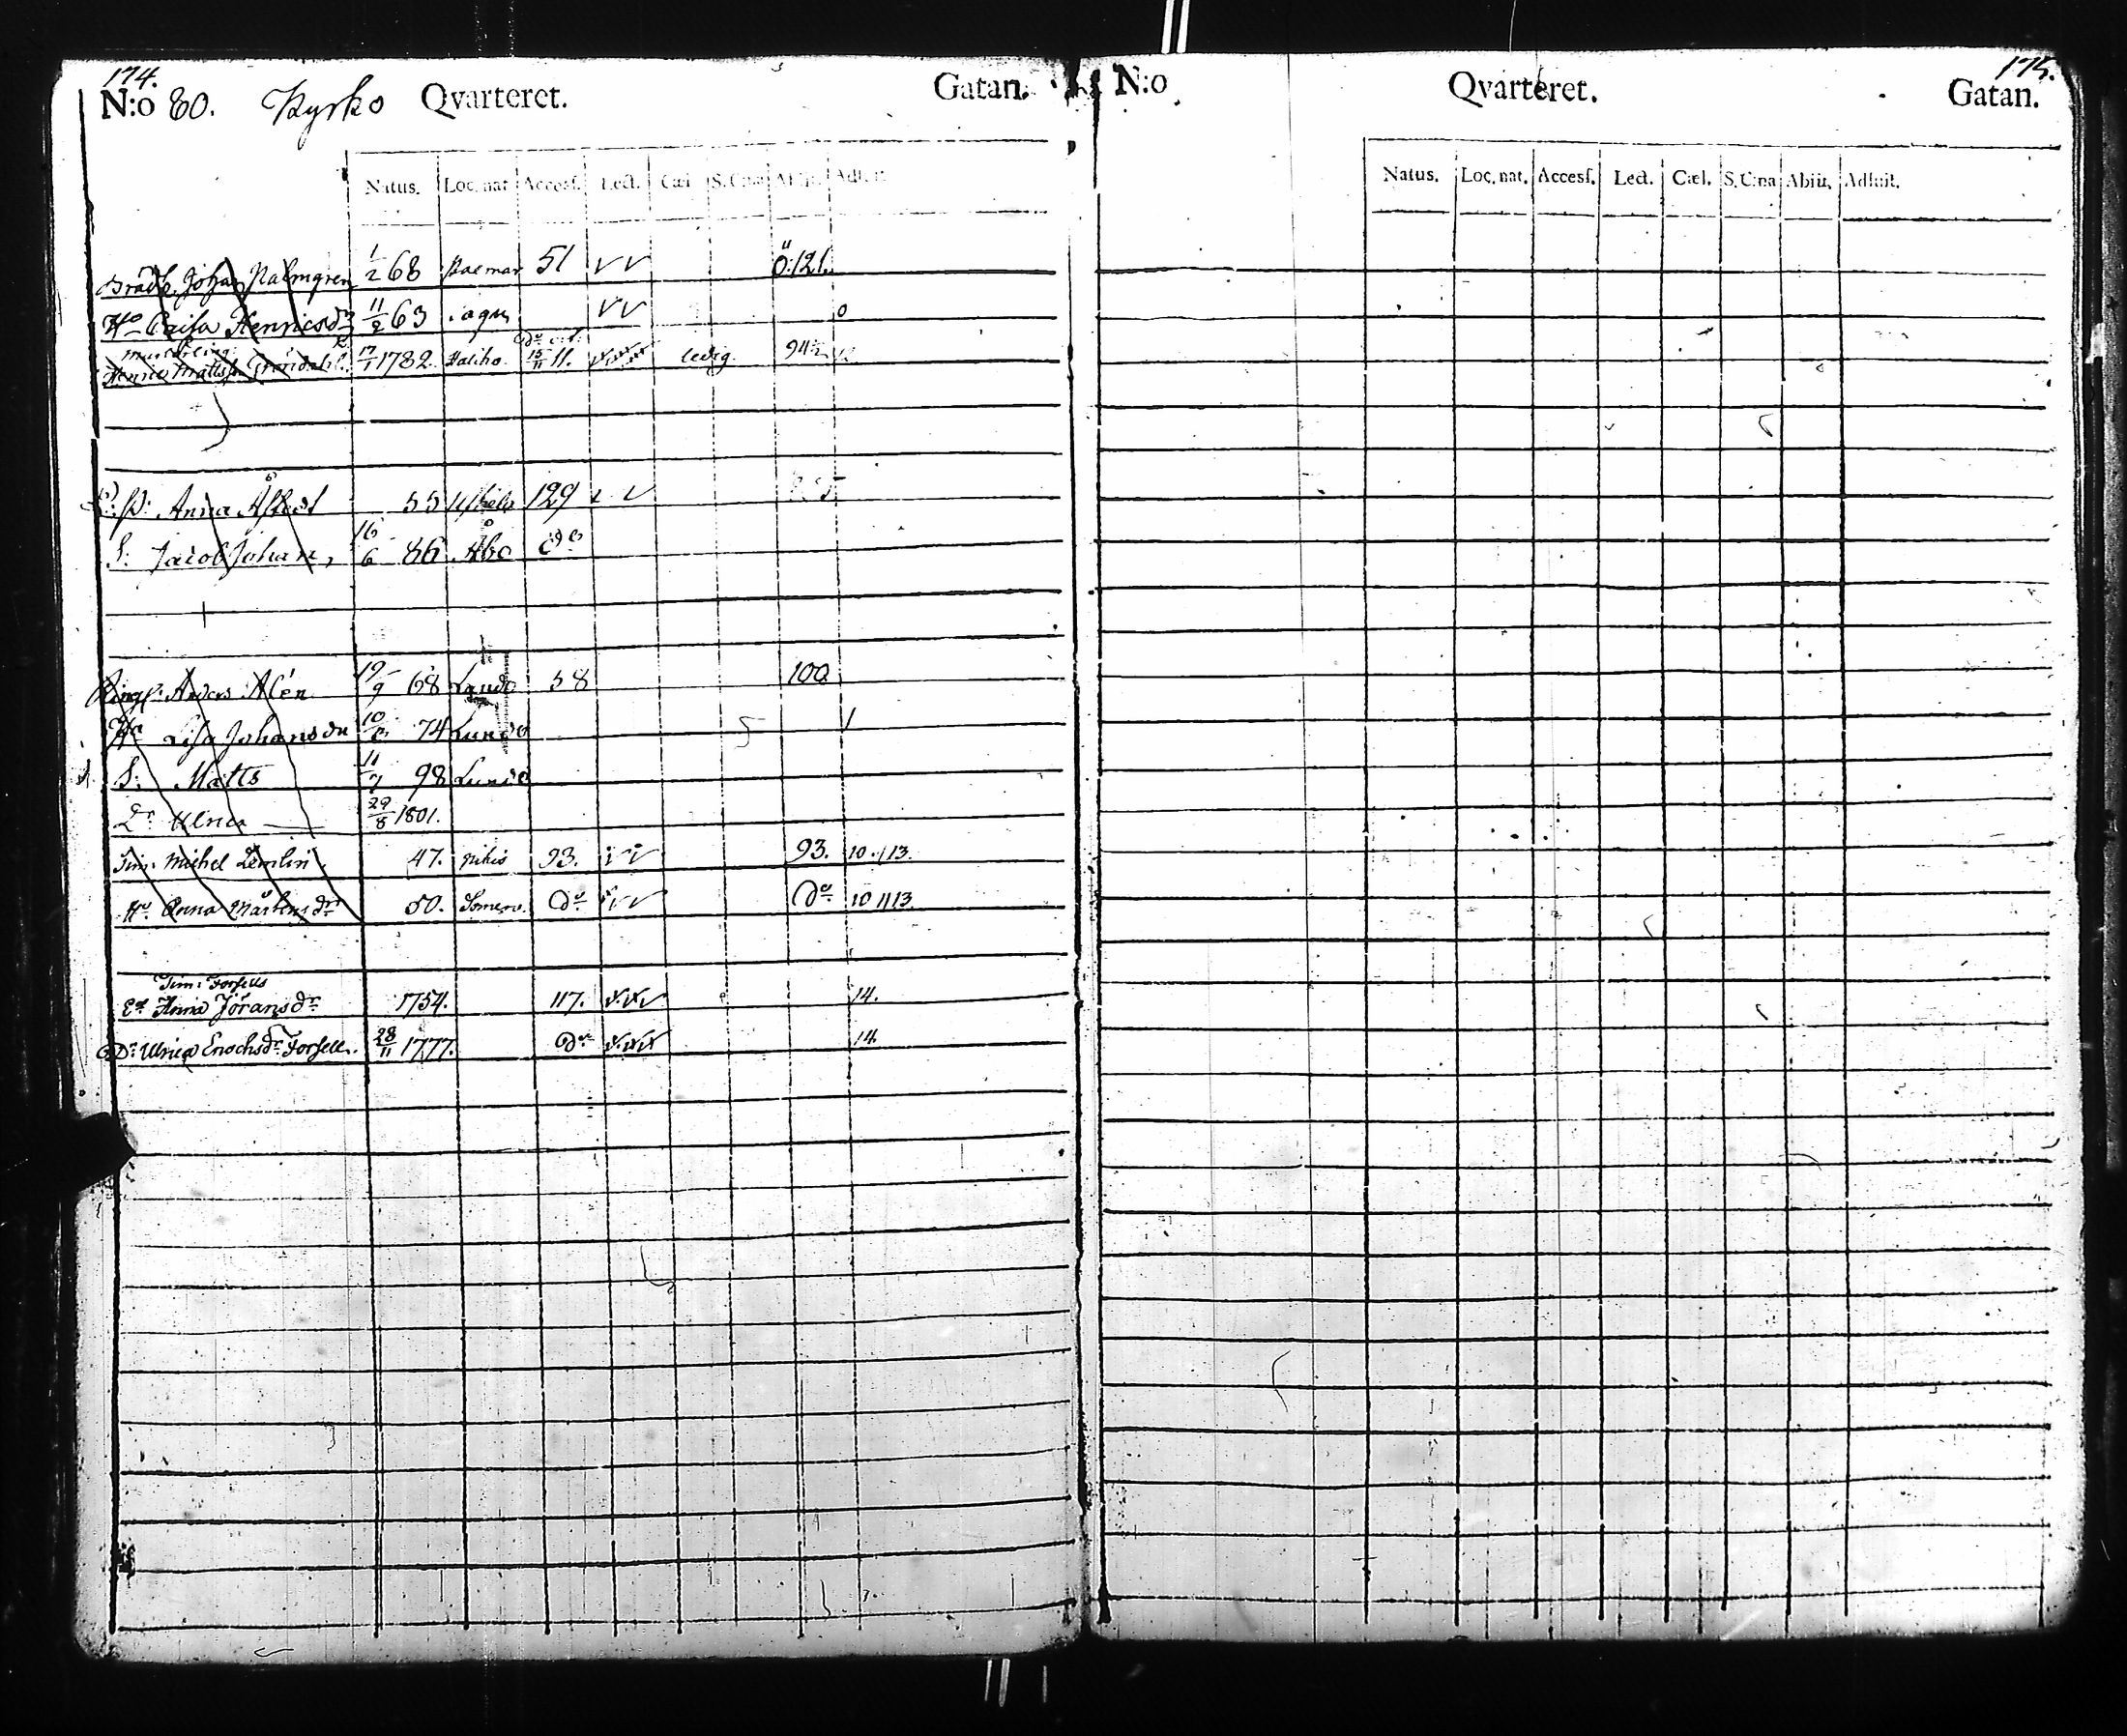 174.
N:o 80. Kyrko Qvarteret. Gatan.
Natus. Loc. nat. Accesf. Lect. Cæl. S. Cna Abiit. Adfuit.
Johan Palmgren 1/2 68 51 Ö:121.
Ho Caisa Henricsdr 11/2 63 0
Henric Mattss. Gröndahl. 17/1 1782. Haliko. 15/11 11. ledig. 94½
Anna 55 129
S: Jacob Johan, 16/6 86 Åbo do
Anders Alén 19/9 68 Lundo 58 100
Ho Lisa Johansdr 74 Lundo 1
S: Matts 11/7 98 Lundo
Dr Ulrica 29/8 1801.
Tim: Michel Lemlin 47. Pikis 93. 93. 10 11 13.
Hu Anna Mårtensdr 50. Somero. Do Do 10 11 13.
Tim: Forsells
Ea Anna Jöransdr 1754. 117. 14.
Dr Ulrica Enochsdr Forsell. 28/11 1777. Do 14.
175.
N:o Qvarteret. Gatan.
Natus. Loc. nat. Accesf. Lect. Cæl. S. C:na Abiit. Adfuit.